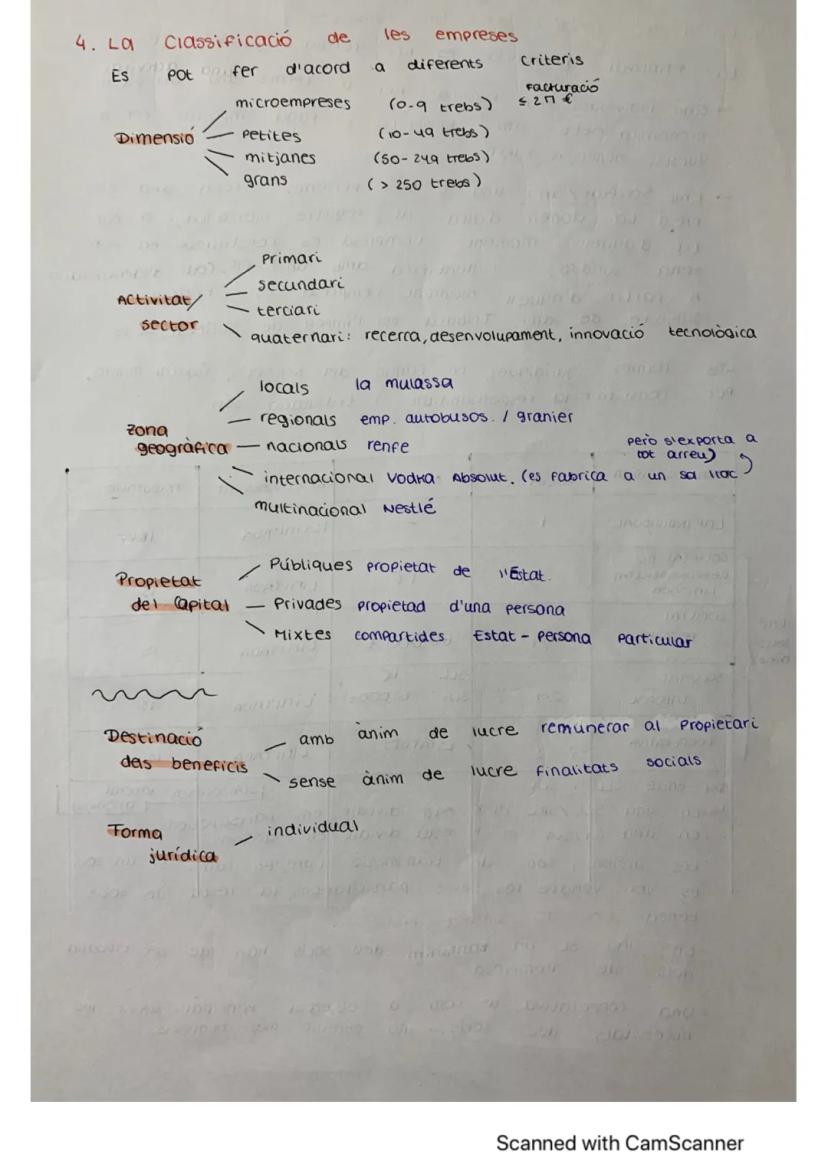 4. La Classificació de les empreses
Es pot fer d'acord a diferents criteris
microempreses (0-9 trebs) Facturació ≤ 2M €
Dimensió petites (10-49 trebs)
mitjanes (50-249 trebs)
grans (> 250 trebs)
Primari
secundari
Activitat/ terciari
sector
quaternari: recerca, desenvolupament, innovació tecnològica
locals la mulassa
regionals emp. autobusos. / granier
zona
geogràfica nacionals renfe
però s'exporta a
tot arreu)
internacional Vodka Absolut. (es fabrica a un sa lloc
multinacional Nestlé
Públiques propietat de l'Estat.
Propietat
del Capital Privades propietad d'una persona
Mixtes compartides Estat - persona particular
Destinació
dels beneficis
amb ànim de lucre remunerar al propietari
sense ànim de lucre finalitats socials
Forma
jurídica
individual
Scanned with CamScanner